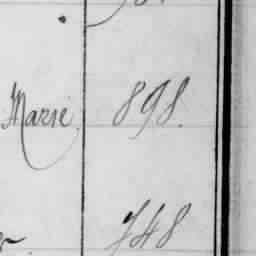 Marie 898.
748